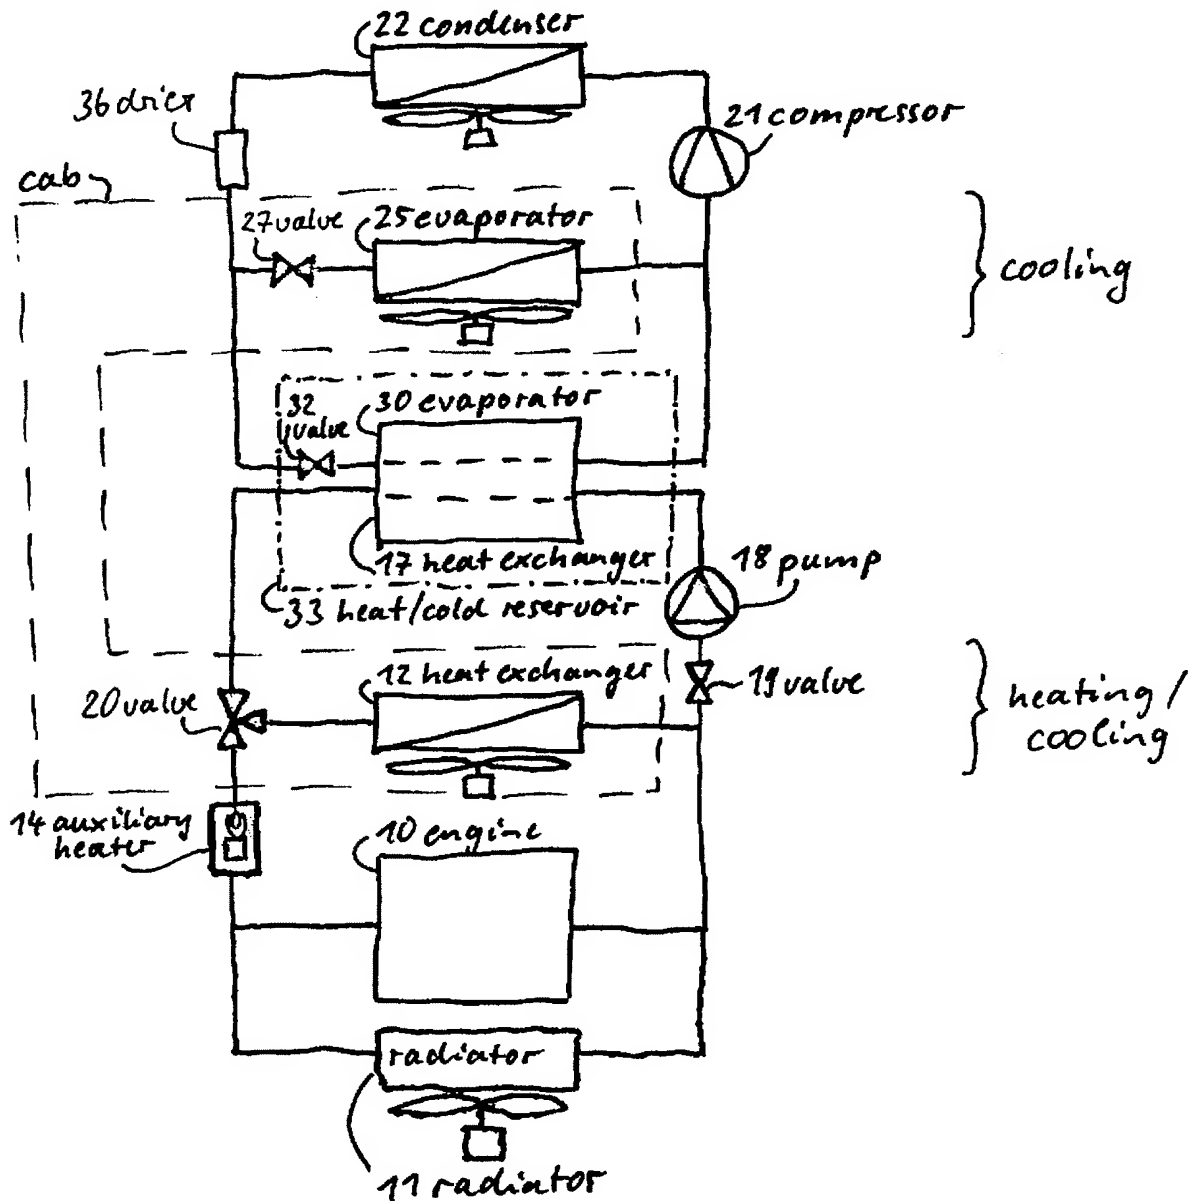 22 condenser
36 drier
21 compressor
cab
27 valve
25 evaporator
cooling
32
valve
30 evaporator
17 heat exchanger
33 heat/cold reservoir
18 pump
12 heat exchanger
19 valve
20 valve
heating/
cooling
14 auxiliary
heater
10 engine
radiator
11 radiator